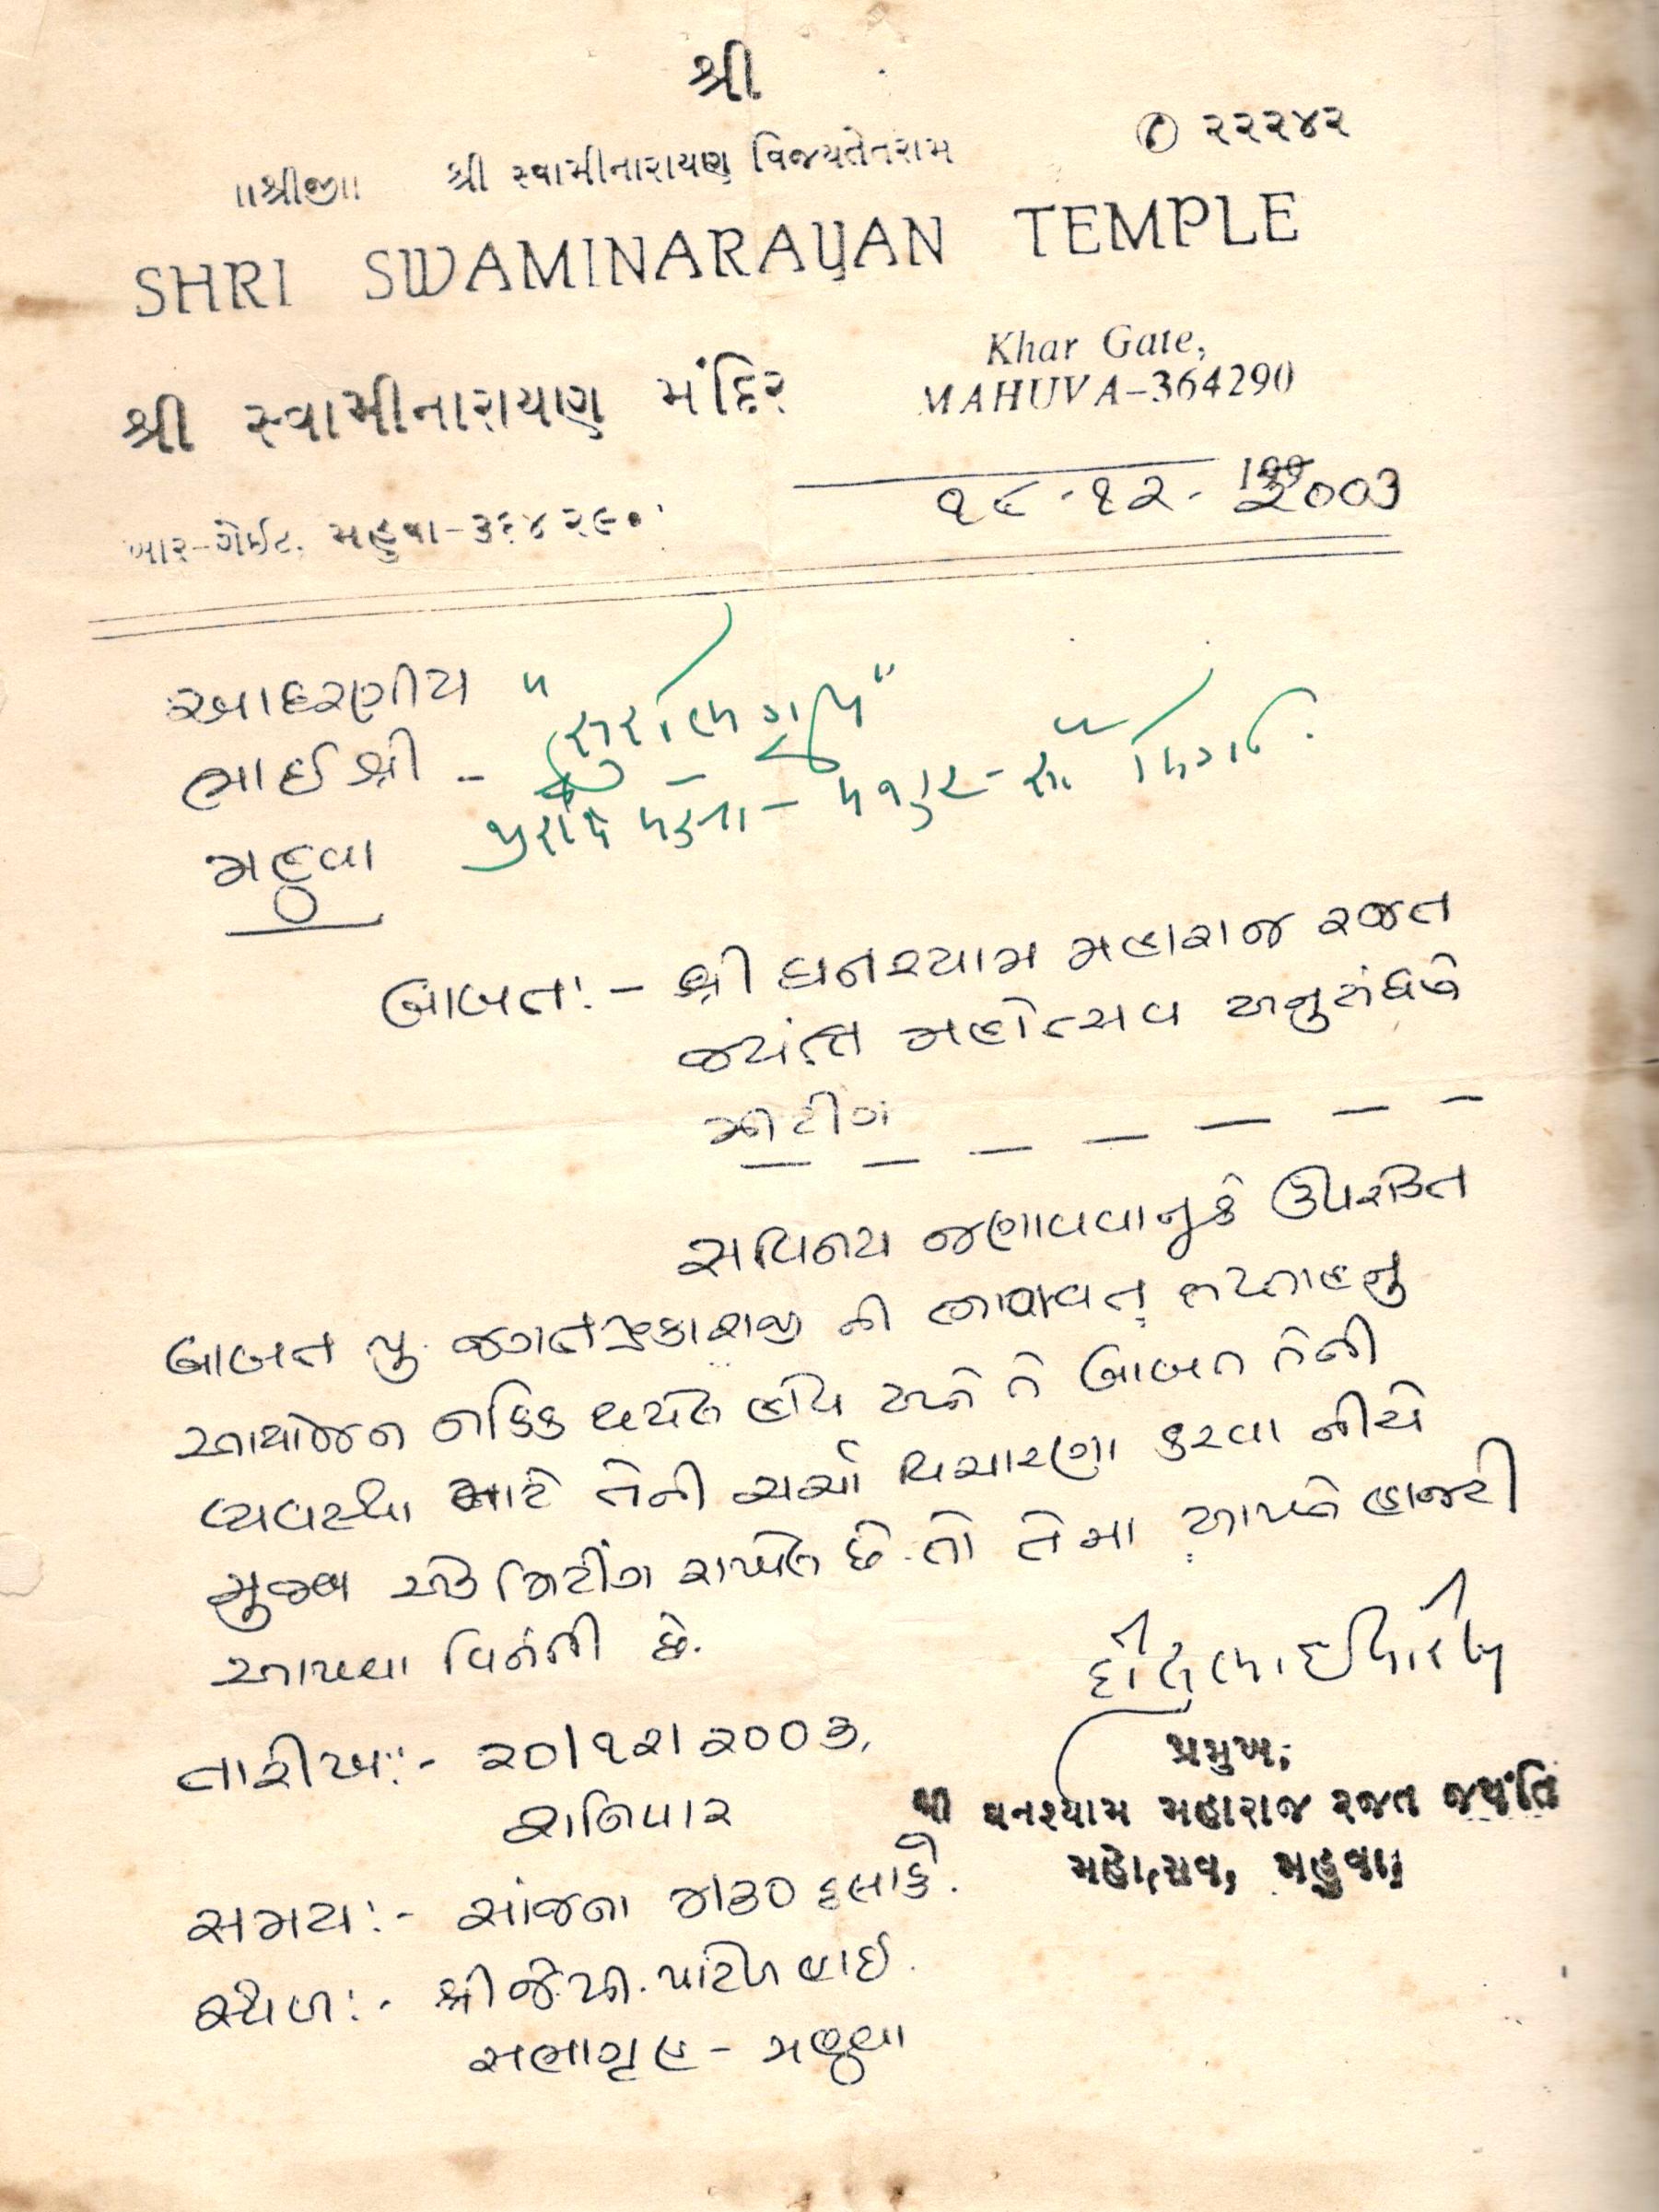 શ્રી
✆ ૨૨૨૪૨
॥શ્રીજી॥ શ્રી સ્વામીનારાયણ વિજયતેતરામ
SHRI SWAMINARAYAN TEMPLE
Khar Gate,
શ્રી સ્વામીનારાયણ મંદિર
MAHUVA-364290
૧૬-૧૨-2003
ખાર-ગેઈટ, મહુવા-૩૬૪૨૯૦
આદરણીય
ભાઈશ્રી -
મહુવા
બાબત:- શ્રી ઘનશ્યામ મહારાજ રજત
જયંતિ મહોત્સવ અનુસંધાને
મીટીંગ
સવિનય જણાવવાનુ કે ઉપરોક્ત
બાબત પુ. જગતપ્રકાશજી ની ભાગવત્ સપ્તાહનુ
આયોજન નક્કિ થયેલ હોય અને તે બાબત તેની
વ્યવસ્થા માટે તેની ચર્ચા વિચારણા કરવા નીચે
મુજબ એક મિટીંગ રાખેલ છે. તો તેમા આપને હાજરી
આપવા વિનંતી છે.
તારીખ:- ૨૦/૧૨/૨૦૦૩,
શનિવાર
પ્રમુખ,
શ્રી ઘનશ્યામ મહારાજ રજત જયંતિ
મહોત્સવ, મહુવા,
સમય:- સાંજના ૪/૩૦ કલાકે.
સ્થળ:- શ્રી જે.પી. પારેખ હાઈ.
સભાગૃહ - મહુવા